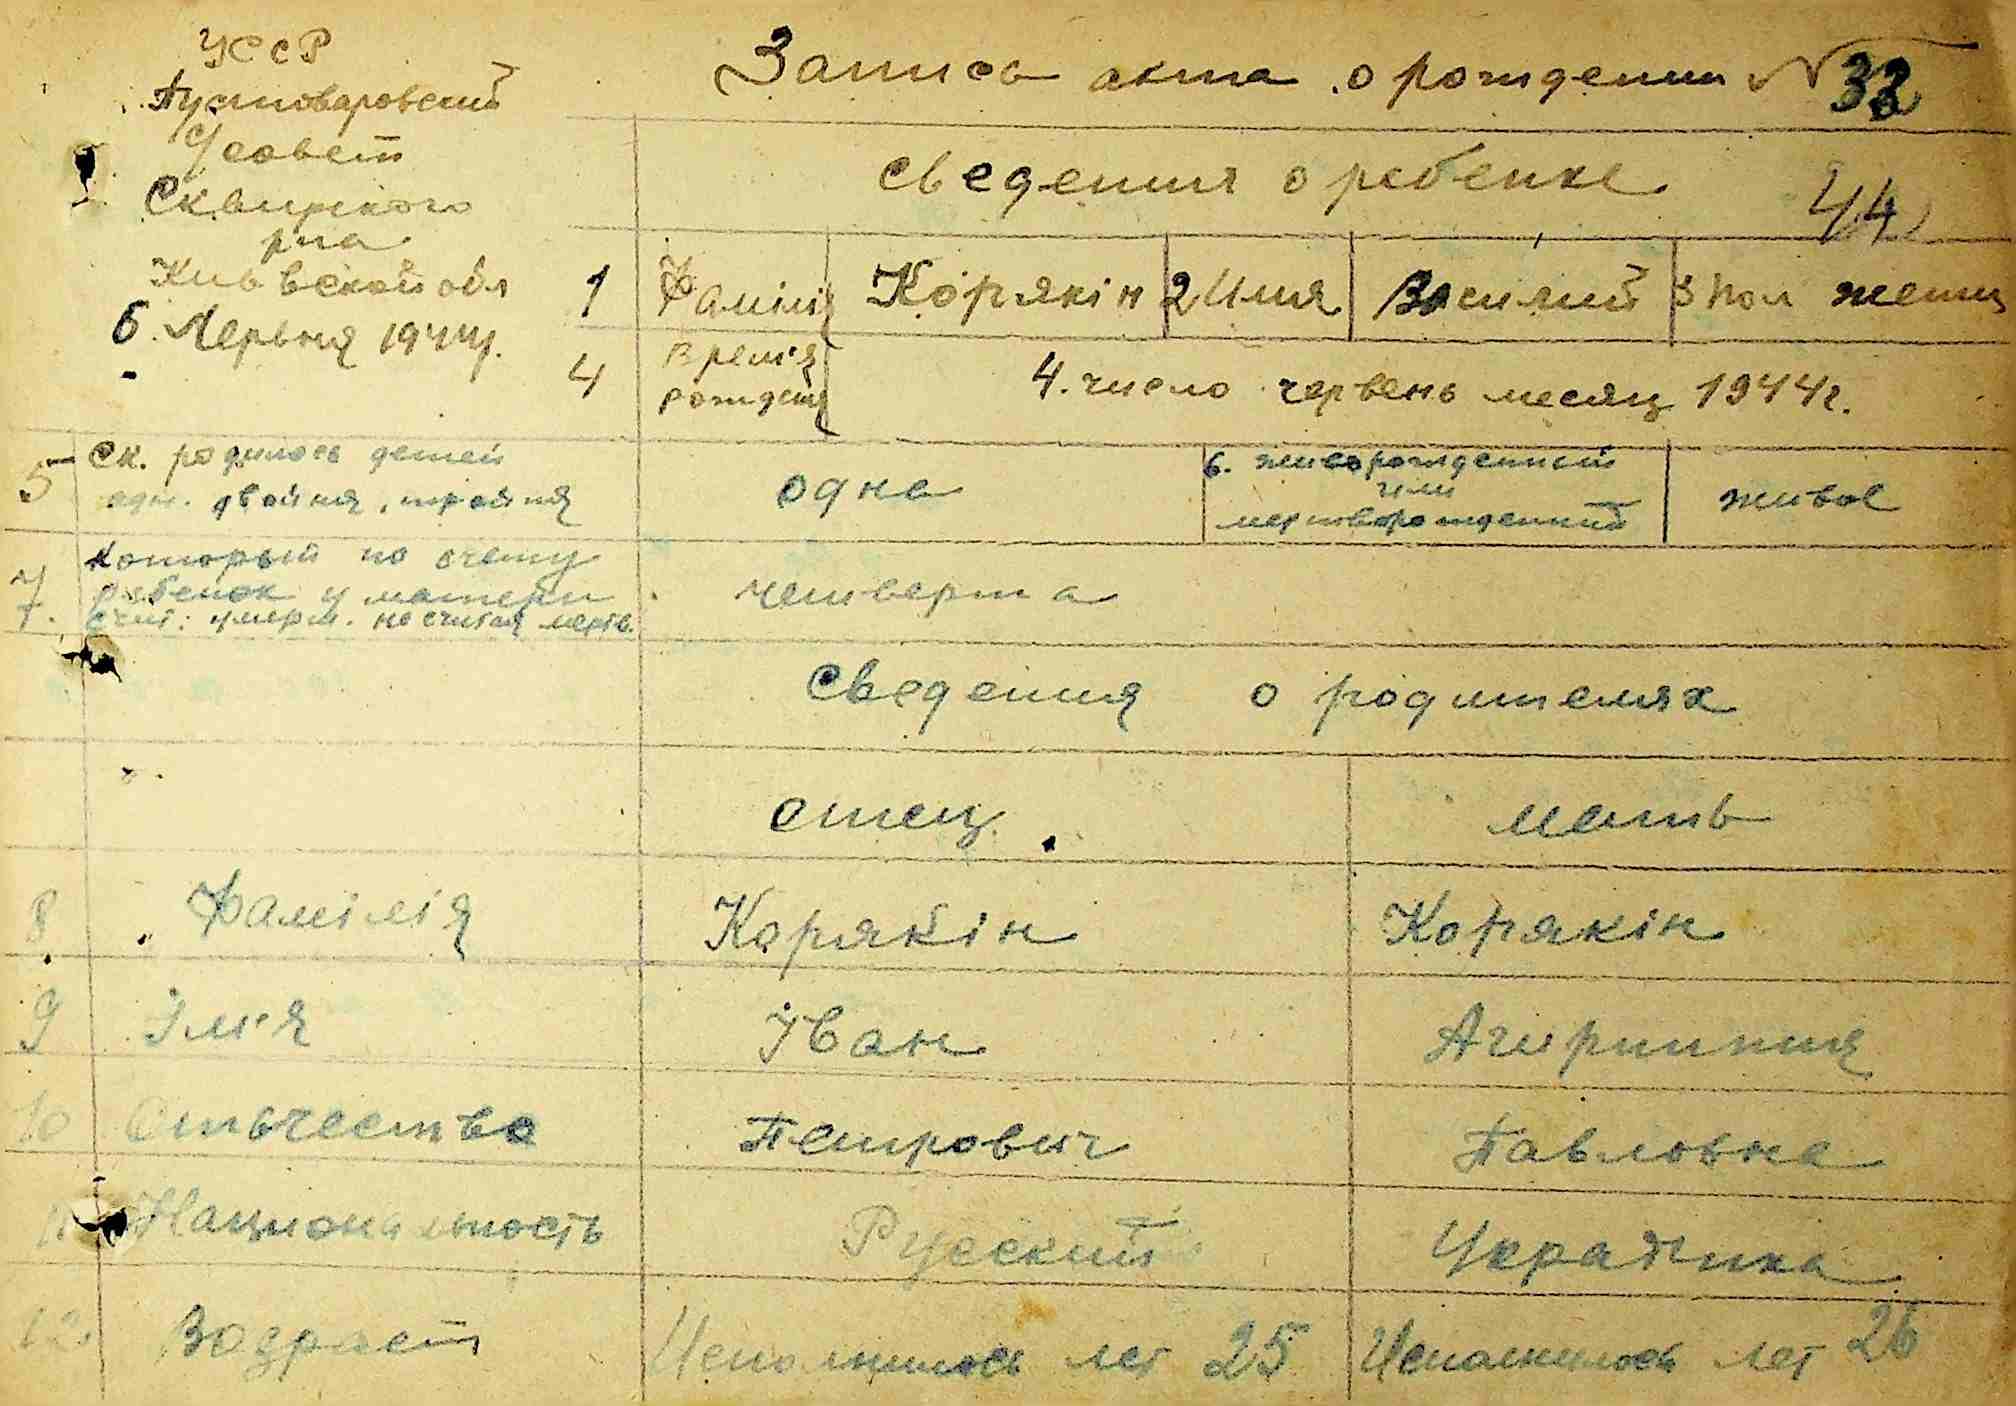 УССР
Пустоваровский
С/совет
Сквирского
р-на
Киевской обл
6. Червня 1944г.
Запись акта о рождении № 32
44
сведения о ребенке
1 Фамілія Корякін 2 Имя Василий 3 Пол женщ
4 Врем'я рожден 4. число червень месяц 1944г.
5 Ск. родилось детей
одн. двойня, тройня
одна
6. живорожденный
или
мертворожденный
живое
7. Который по счету
ребенок у матери
счит. умерш. не считая мертв.
четверта
Сведения о родителях
отец мать
8 Фамілія Корякін Корякін
9 Ім'я Іван Агирипина
10 Отвчество Петрович Павловна
11 Национальность Русский Украінка
12. Возраст Исполнилось лет 25 Исполнилось лет 26